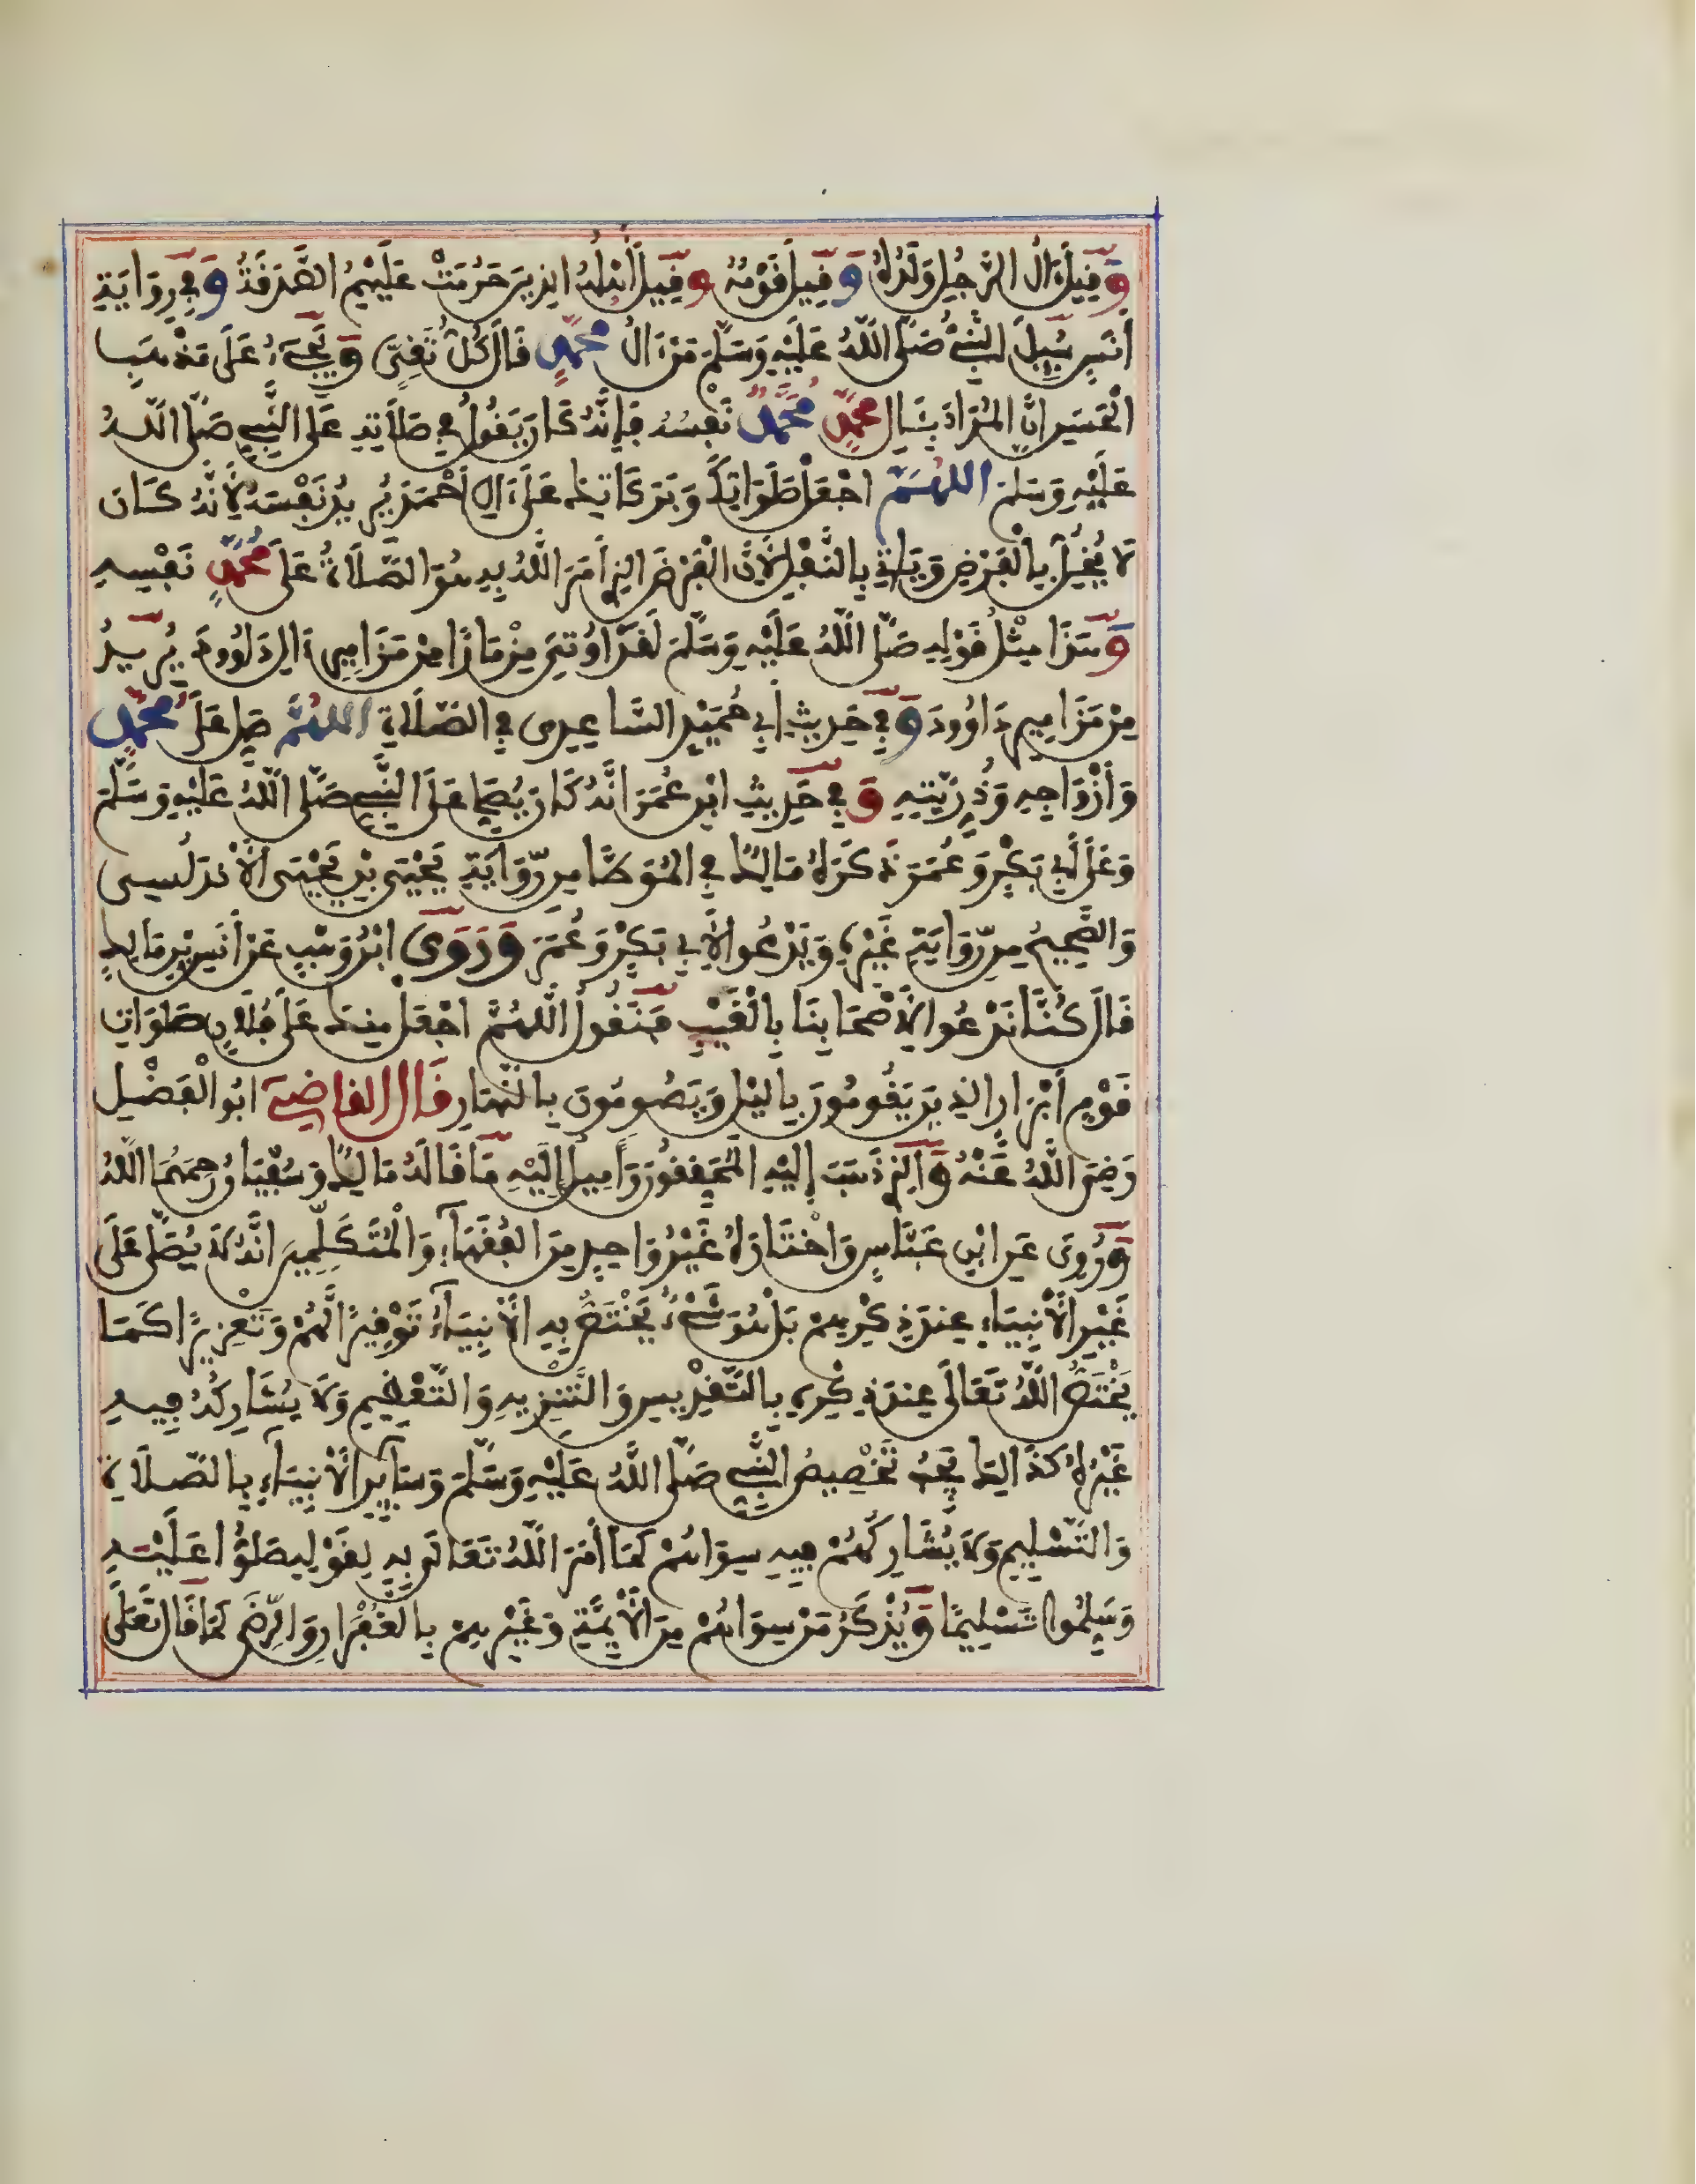 وَقِيلَ ءَالُ الرَّجُلِ وَلَدُهُ وَقِيلَ قَوْمُهُ وَقِيلَ أَهْلُهُ الذِينَ حَرُمَتْ عَلَيْهِمُ الصَّدَقَةُ وَفِي رِوَايَةِ
أَنَسٍ سُئِلَ النَّبِيُّ صَلَّى اللَّهُ عَلَيْهِ وَسَلَّمَ مَنْ ءَالُ مُحَمَّدٍ قَالَ كُلُّ تَقِيٍّ وَيَجِيءُ عَلَى مَذْهَبِ
الْحَسَنِ انَّ الْمُرَادَ بِئَالِ مُحَمَّدٍ مُحَمَّدٌ نَفْسُهُ فَإِنَّهُ كَانَ يَقُولُ فِي صَلَاتِهِ عَلَى النَّبِيِّ صَلَّى اللَّهُ
عَلَيْهِ وَسَلَّمَ اللَّهُمَّ اجْعَلْ صَلَوَاتِكَ وَبَرَكَاتِكَ عَلَى ءَالِ أَحْمَدَ يُرِيدُ نَفْسَهُ لِأَنَّهُ كَانَ
لَا يُخِلُّ بِالْفَرْضِ وَيَأْتِي بِالنَّفْلِ لِأَنَّ الْفَرْضَ الذِي أَمَرَ اللَّهُ بِهِ هُوَ الصَّلَاةُ عَلَى مُحَمَّدٍ نَفْسِهِ
وَهَذَا مِثْلُ قَوْلِهِ صَلَّى اللَّهُ عَلَيْهِ وَسَلَّمَ لَقَدْ أُوتِيَ مِزْمَارًا مِنْ مَزَامِيرِ ءَالِ دَاوُودَ يُرِيدُ
مِنْ مَزَامِيرِ دَاوُودَ وَفِي حَدِيثِ أَبِي حُمَيْدٍ السَّاعِدِي فِي الصَّلَاةِ اللَّهُمَّ صَلِّ عَلَى مُحَمَّدٍ
وَأَزْوَاجِهِ وَذُرِّيَّتِهِ وَفِي حَدِيثِ ابْنِ عُمَرَ انَّهُ كَانَ يُصَلِّي عَلَى النَّبِيِّ صَلَّى اللَّهُ عَلَيْهِ وَسَلَّمَ
وَعَلَى أَبِي بَكْرٍ وَعُمَرَ ذَكَرَهُ مَالِكٌ فِي الْمُوَطَّأ مِن رِّوَايَةِ يَحْيَى بْنِ يَحْيَى الْأَنْدَلُسِي
وَالصَّحِيحُ مِن رِّوَايَةِ غَيْرِهِ وَيَدْعُوا لِأَبِي بَكْرٍ وَعُمَرَ وَرَوَى ابْنُ وَهْبٍ عَنْ أَنَسِ بْنِ مَالِكٍ
قَالَ كُنَّا نَدْعُوا لِأَصْحَابِنَا بِالْغَيْبِ فَنَقُولُ اللَّهُمَّ اجْعَلْ مِنكَ عَلَى فُلَانٍ صَلَوَاتِ
قَوْمٍ أَبْرَارٍ الذِينَ يَقُومُونَ بِاليْلِ وَيَصُومُونَ بِالنَّهَارِ قَالَ الْقَاضِي ابُو الْفَضْلِ
رَضِيَ اللَّهُ عَنْهُ وَالذِي ذَهَبَ إِلَيْهِ الْمُحَقِّقُونَ وَأَمِيلُ إِلَيْهِ مَا قَالَهُ مَالِكٌ وَسُفْيَانُ رَحِمَهُمَا اللَّهُ
وَرُوِيَ عَنِ ابْنِ عَبَّاسٍ وَاخْتَارَهُ غَيْرُ وَاحِدٍ مِنَ الْفُقَهَاءِ وَالْمُتَكَلِّمِينَ انَّهُ لَا يُصَلَّى عَلَى
غَيْرِ الْأَنْبِيَاءِ عِندَ ذِكْرِهِمْ بَلْ هُوَ شَيْءٌ يَخْتَصُّ بِهِ الْأَنْبِيَاءُ تَوْقِيرًا لَّهُمْ وَتَعْزِيزًا كَمَا
يَخْتَصُّ اللَّهُ تَعَالَى عِندَ ذِكْرِهِ بِالتَّقْدِيسِ وَالتَّنْزِيهِ وَالتَّعْظِيمِ وَلَا يُشَارِكُهُ فِيهِ
غَيْرُهُ كَذَالِكَ يَجِبُ تَخْصِيصُ النَّبِيِّ صَلَّى اللَّهُ عَلَيْهِ وَسَلَّمَ وَسَائِرِ الْأَنْبِيَاءِ بِالصَّلَاةِ
وَالتَّسْلِيمِ وَلَا يُشَارِكُهُمْ فِيهِ سِوَاهُمْ كَمَا أَمَرَ اللَّهُ تَعَالَى بِهِ بِقَوْلِهِ صَلُّوا عَلَيْهِ
وَسَلِّمُوا تَسْلِيمًا وَيُذْكَرُ مَنْ سِوَاهُمْ مِنَ الْأَئِمَّةِ وَغَيْرِهِمْ بِالْغُفْرَانِ وَالرِّضَى كَمَا قَالَ تَعَلَى